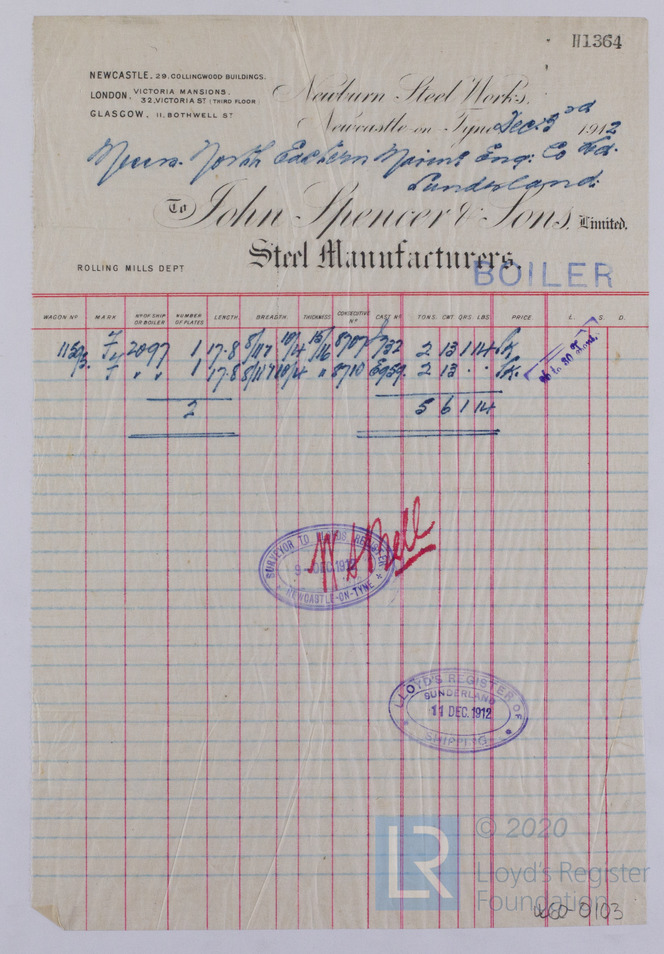 H1364
NEWCASTLE. 29. COLLINGWOOD BUILDINGS.
LONDON. VICTORIA MANSIONS.
32, VICTORIA ST (THIRD FLOOR)
GLASGOW. 11, BOTHWELL ST
Newburn Steel Works,
Newcastle-on-Tyne Dec. 3rd 1912
Messrs. North Eastern Marine Eng. Co Ltd.
Sunderland.
To John Spencer & Sons, Limited.
Steel Manufacturers,
ROLLING MILLS DEPT
BOILER
WAGON No MARK No OF SHIP OR BOILER NUMBER OF PLATES LENGTH. BREADTH. THICKNESS CONSECUTIVE No CAST No TONS. CWT QRS. LBS. PRICE L. S. D.
2097 1 17-8 15/16 8707 2 13 1 14
" " 1 17-8 " 8710 2 13 . .
2 5 6 1 14
SURVEYOR TO LLOYDS REGISTER
9 - DEC. 1912
NEWCASTLE-ON-TYNE
LLOYD'S REGISTER OF
SUNDERLAND
11 DEC. 1912
SHIPPING
LR © 2020
Lloyd's Register
Foundation